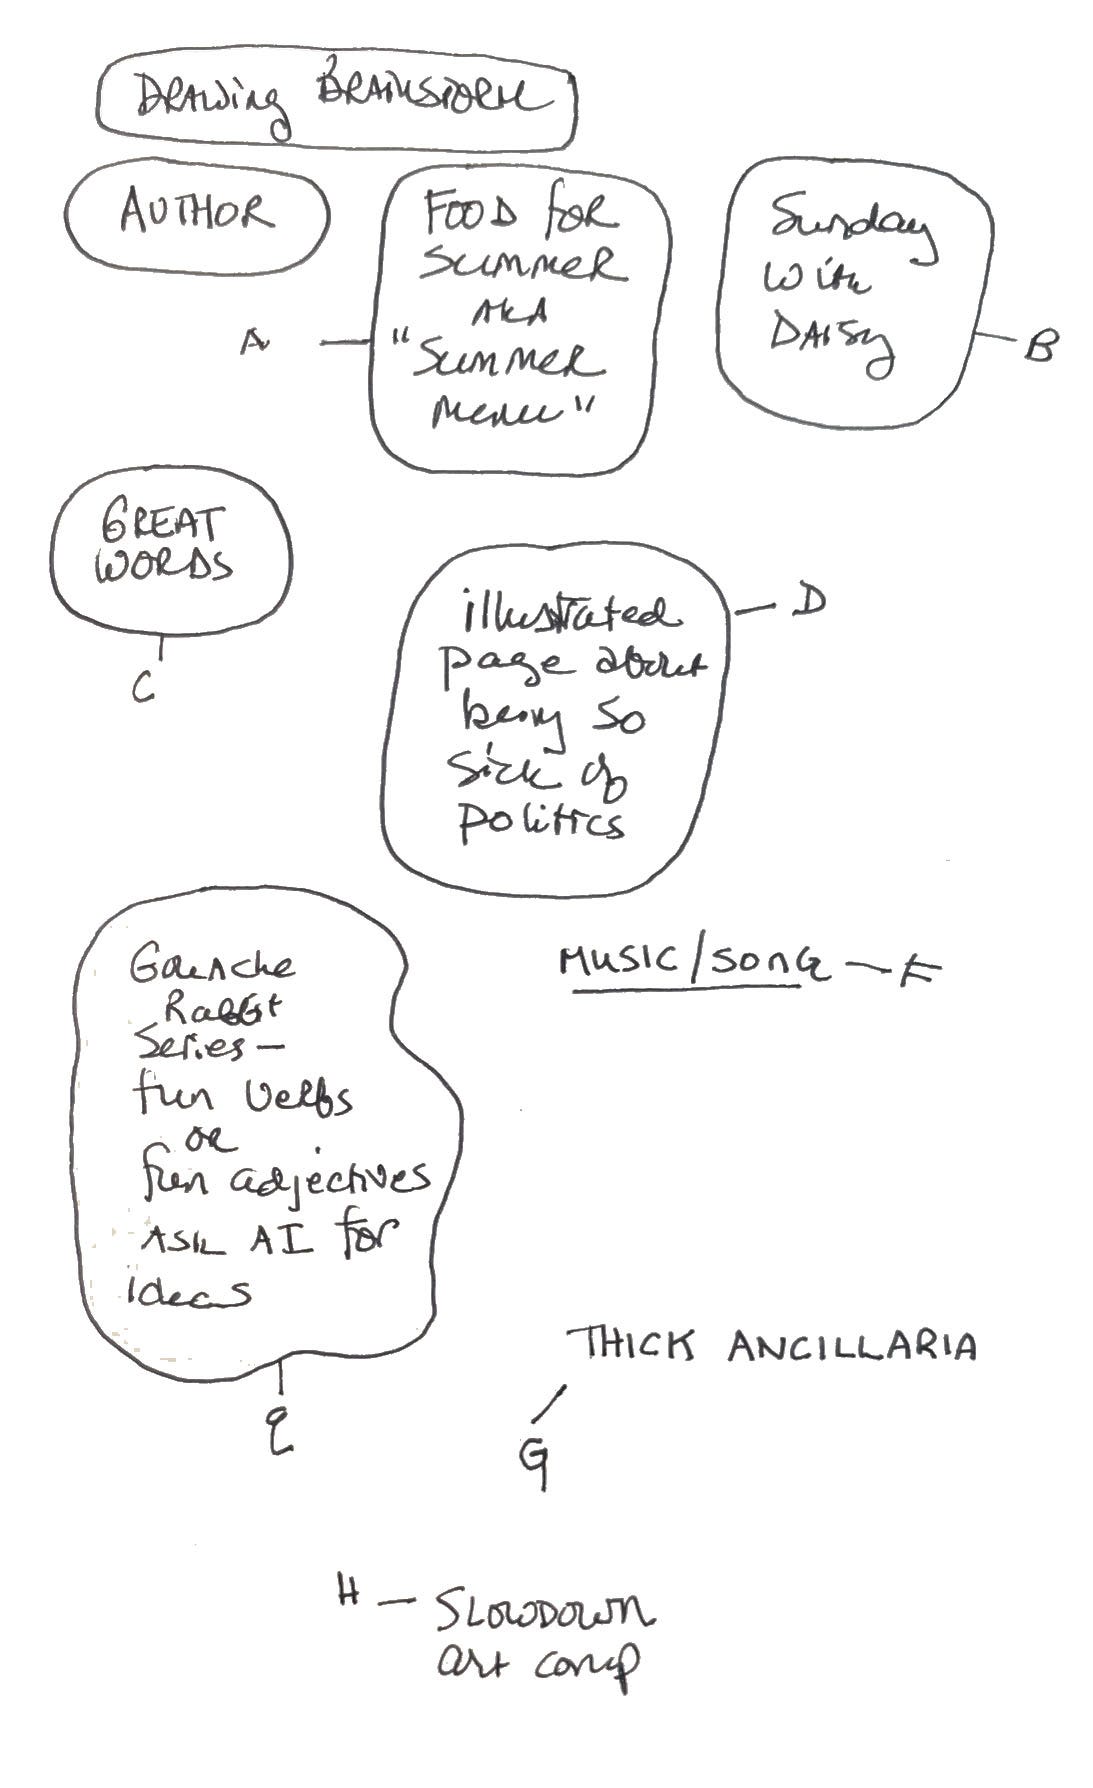 Drawing Brainstorm
AUTHOR
FOOD for
Summer
AKA
"Summer
menu"
A
Sunday
with
DAISY
B
GREAT
WORDS
C
illustrated
page about
being so
sick of
politics
D
Gouache
Rabbit
Series –
fun verbs
or
fun adjectives
ASK AI for
ideas
E
MUSIC/SONG – F
THICK ANCILLARIA
G
H – SLOWDOWN
art comp